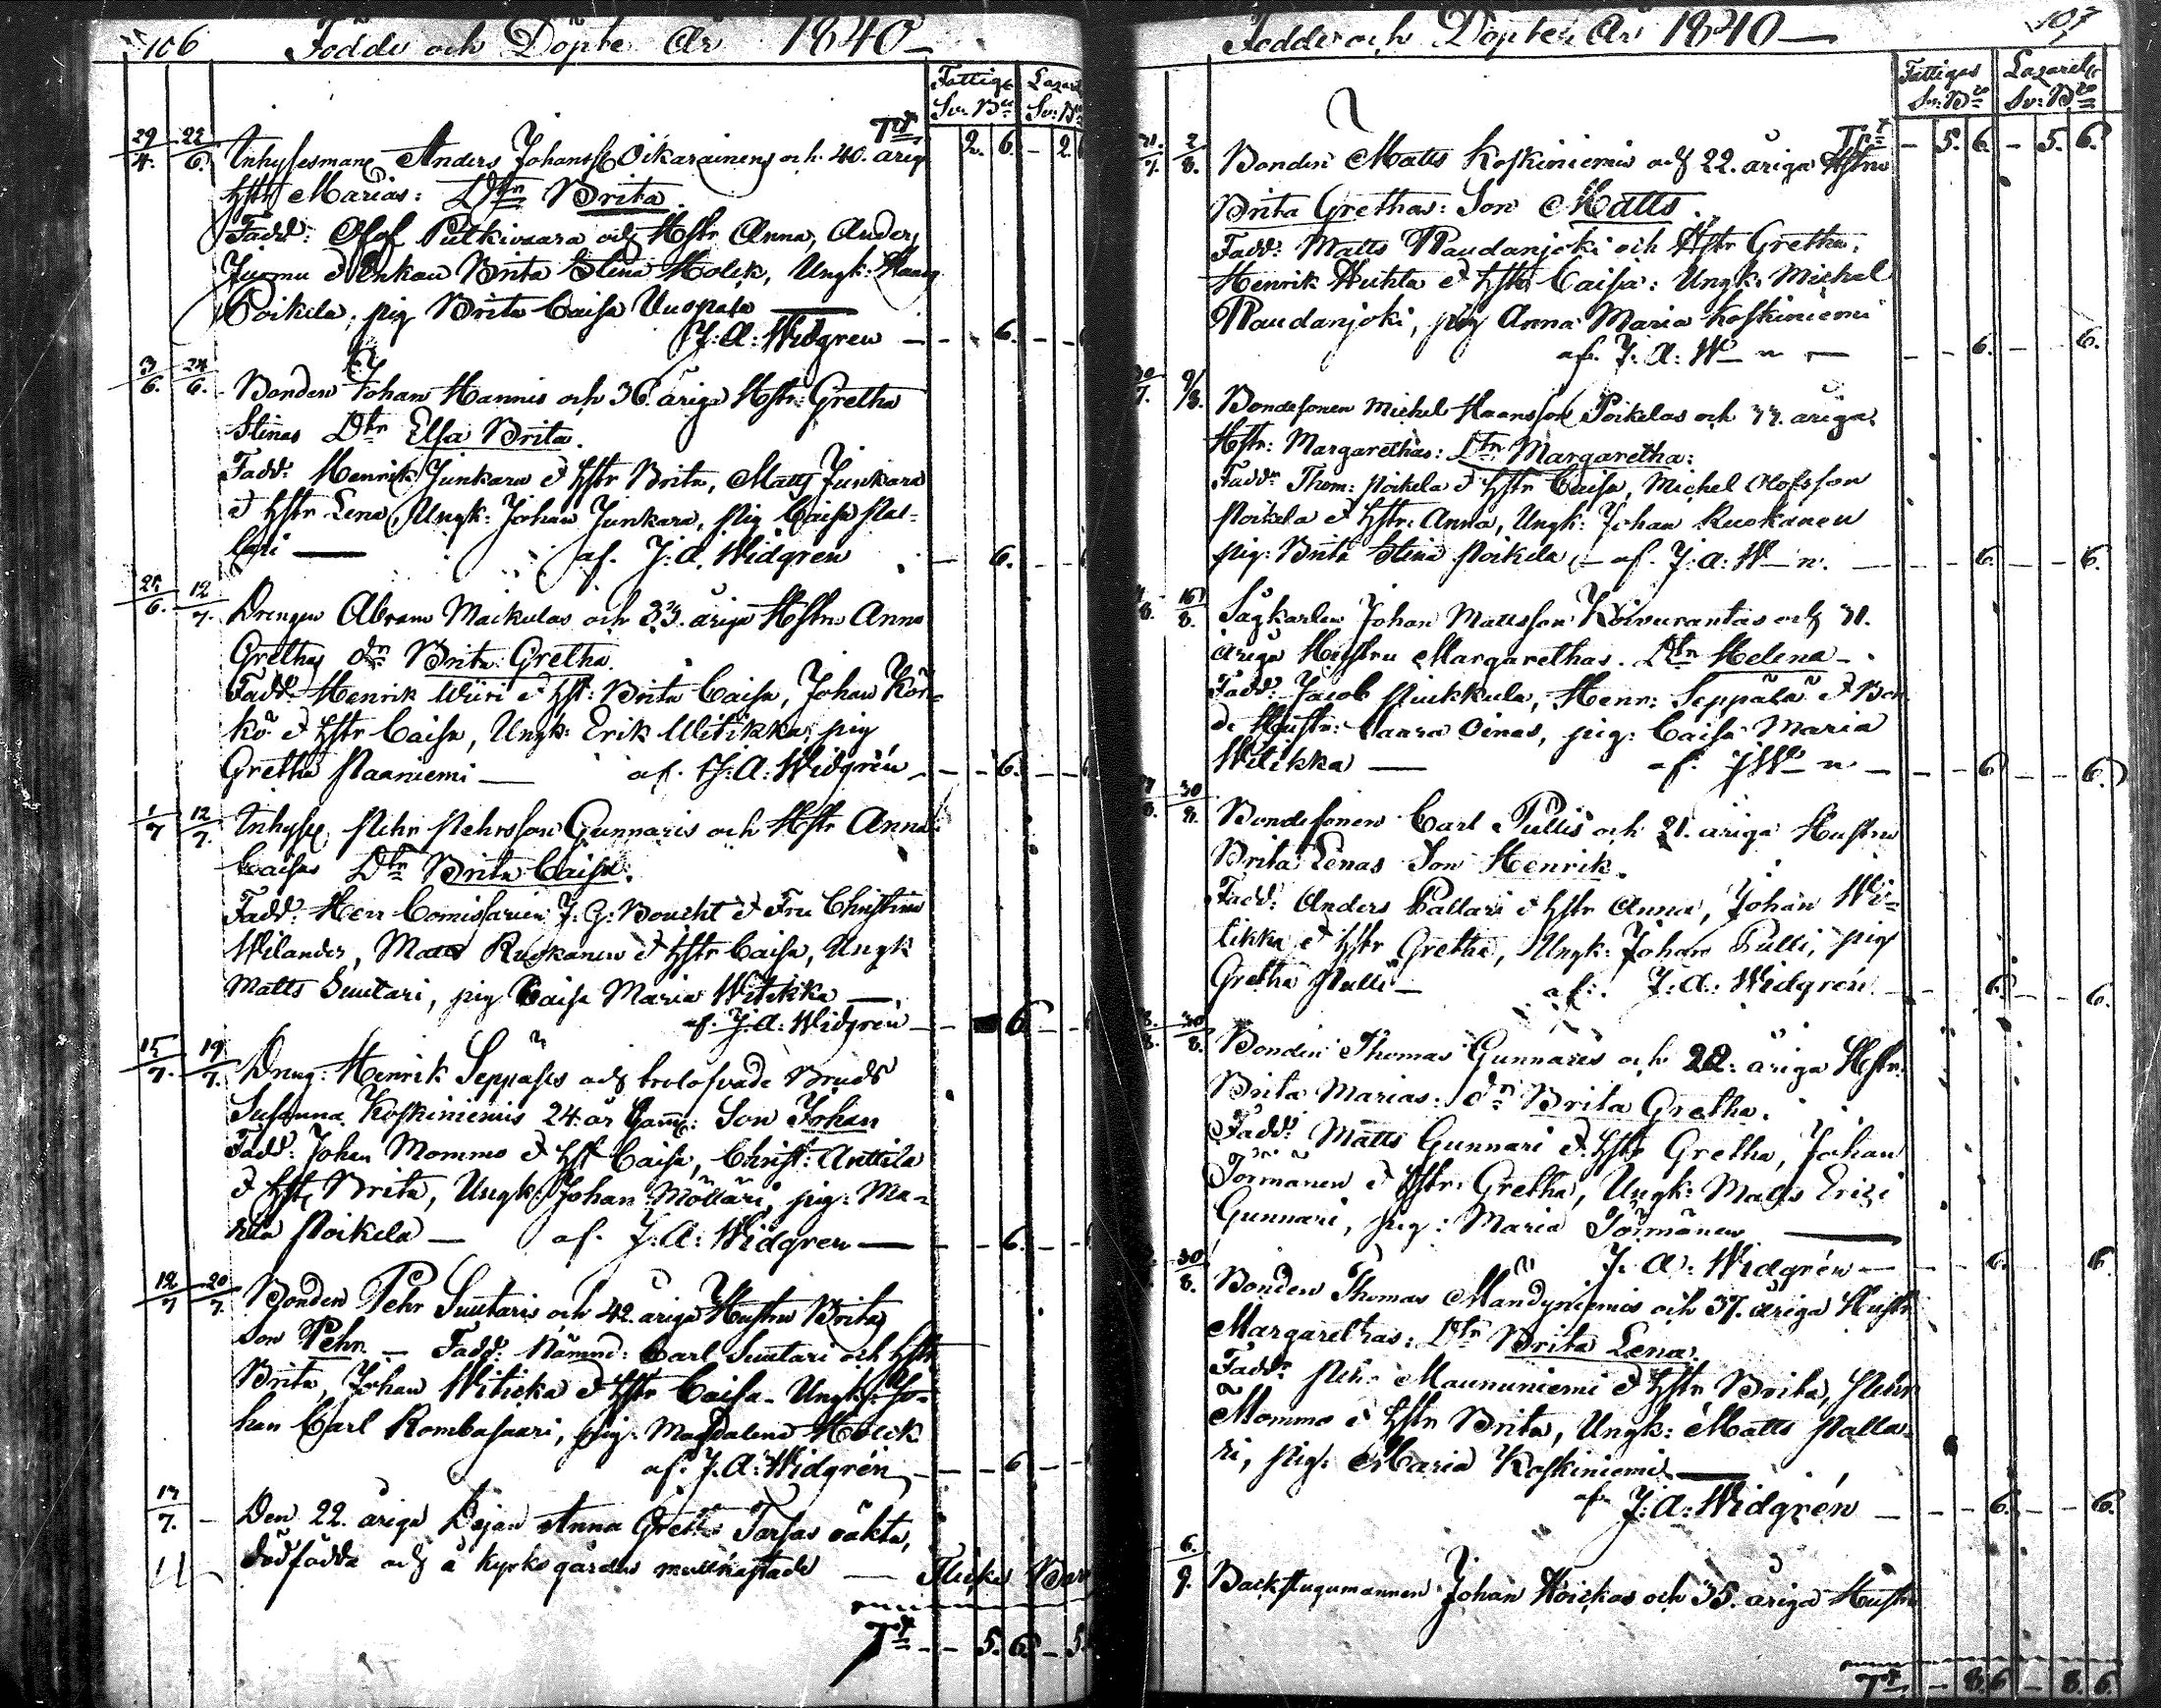 106 Födde och Döpte År 1840
Fattigs Lazar
Sv: Bco Sv: B
Trt
29/4. 22/6. Inhysesman Anders Johanss Oikarainens och 40. årig 2. 6. - 2.
Hstr Marias: Dtr Brita.
Fadd: Olof Putkivaara och Hstr Anna, Anders
Juomu & Enkan Brita Stina Holck, Ungk: Hans
Poikela, pig Brita Caisa Uuspala
J: A: Widgren - - 6. - -
3/6. 24/6. Bonden Johan Hannis och 36. åriga Hstr: Gretha
Stinas Dtr Elsa Brita.
Fadd: Henrik Junkara & Hstr Brita, Matts Junkara
& Hstr Lena, Ungk: Johan Junkara, pig Caisa Pal-
lari af. J: A. Widgren - 6. -
25/6. 12/7. Drengen Abram Maikulas och 33. åriga Hstru Anna
Grethas dr Brita Gretha.
Fadd: Henrik Wiiri & Hst: Brita Caisa, Johan Kör-
kö & Hstr Caisa, Ungk: Erik Witikka, pig
Gretha Paaniemi af. J: A: Widgrén - - 6. - -
1/7 12/7. Inhyses Pehr Pehrsson Gunnaris och Hstr Anna
Caisas Dtr Brita Caisa.
Fadd: Herr Comissarien J: G: Boucht & Fru Christina
Wilander, Matts Ruokanen & Hstr Caisa, Ungk
Matts Suutari, pig Caisa Maria Witikka
af. J: A: Widgrén - - 6 -
15/7. 19/7. Dreng: Henrik Seppäläs och trolofvade Bruds
Susanna Koskiniemis 24. år Gam: Son Johan
Fadd: Johan Mommo & Hst Caisa, Christ: Anttila
& Hst Brita, Ungk: Johan Möllari, pig: Ma-
ria Poikela af. J: A: Widgren - - 6. -
12/7 20/7. Bonden Pehr Suutaris och 42. åriga Hustru Britas
son Pehr. - Fadd: Nämnd: Carl Suutari och Hstr
Brita, Johan Witicka & Hstr Caisa - Ungk: Jo-
han Carl Rombasaari, pig: Magdalena Holck
af. J. A: Widgrén - - 6 -
17/7. - Den 22. åriga Pigan Anna Greth Tarsas oäkta,
dödfödda och å kyrkogården mullkastade Flicke Barn
Trt - - 5. 6. - 5.
Födde och Döpte År 1840 107
Fattigas Lazarets
Sv: Bco Sv: Bco
Trt - 5. 6. - 5. 6.
2/8. Bonden Matts Koskiniemis och 22. åriga Hstru
Brita Grethas: Son Matts.
Fadd: Matts Raudanjoki och Hstr Gretha,
Henrik Huhta & Hstr Caisa: Ungk: Michel
Raudanjoki, pig Anna Maria Koskiniemi
af. J: A: W- n - - - 6. - - 6.
9/8. Bondesonen Michel Hansson Poikelas och 33. åriga
Hstr: Margarethas: Dtr Margaretha:
Fadd: Thom: Poikela & Hstr Caisa, Michel Olofsson
Poikela & Hstr: Anna, Ungk: Johan Ruokanen
pig: Brita Stina Poikela - af. J: A: W- n. - - 6. - - 6.
16/8. Sågkarlen Johan Mattsson Koivurantas och 31.
åriga Hustru Margarethas. Dtr Helena -
Fadd: Jacob Piukkula, Henr: Seppälä & Bon-
de Hustru: Caara Oinas, pig: Caisa Maria
Witikka af. JW- n - - - 6. - - 6.
30/8. Bondesonen Carl Pullis och 21. åriga Hustru
Brita Lenas Son Henrik.
Fadd: Anders Pallari & Hstr Anna, Johan Wi-
tikka & Hstr Gretha, Ungk: Johan Pulli, pig
Gretha Pulli - af. J: A: Widgrén - - 6. - - 6.
30/8. Bonden Thomas Gunnaris och 22: åriga Hstr:
Brita Marias: dr Brita Gretha.
Fadd: Matts Gunnari & Hstr Gretha, Johan
Törmänen & Hstr: Gretha, Ungk: Matts Erici
Gunnari, pig: Maria Törmänen
J. A: Widgrén - - - 6. - - 6.
30/8. Bonden Thomas Mandyniemis och 37. åriga Hustr
Margarethas: Dtr Brita Lena.
Fadd: Pehr Maununiemi & Hstr Brita, Pehr
Mommo & Hstr Brita, Ungk: Matts Palla-
ri, pig: Maria Koskiniemi
af. J: A: Widgrén - - - 6. - - 6.
6./9. Backstugumannen Johan Hoickas och 35. åriga Hustru
Trt - 8. 6 - 8. 6.